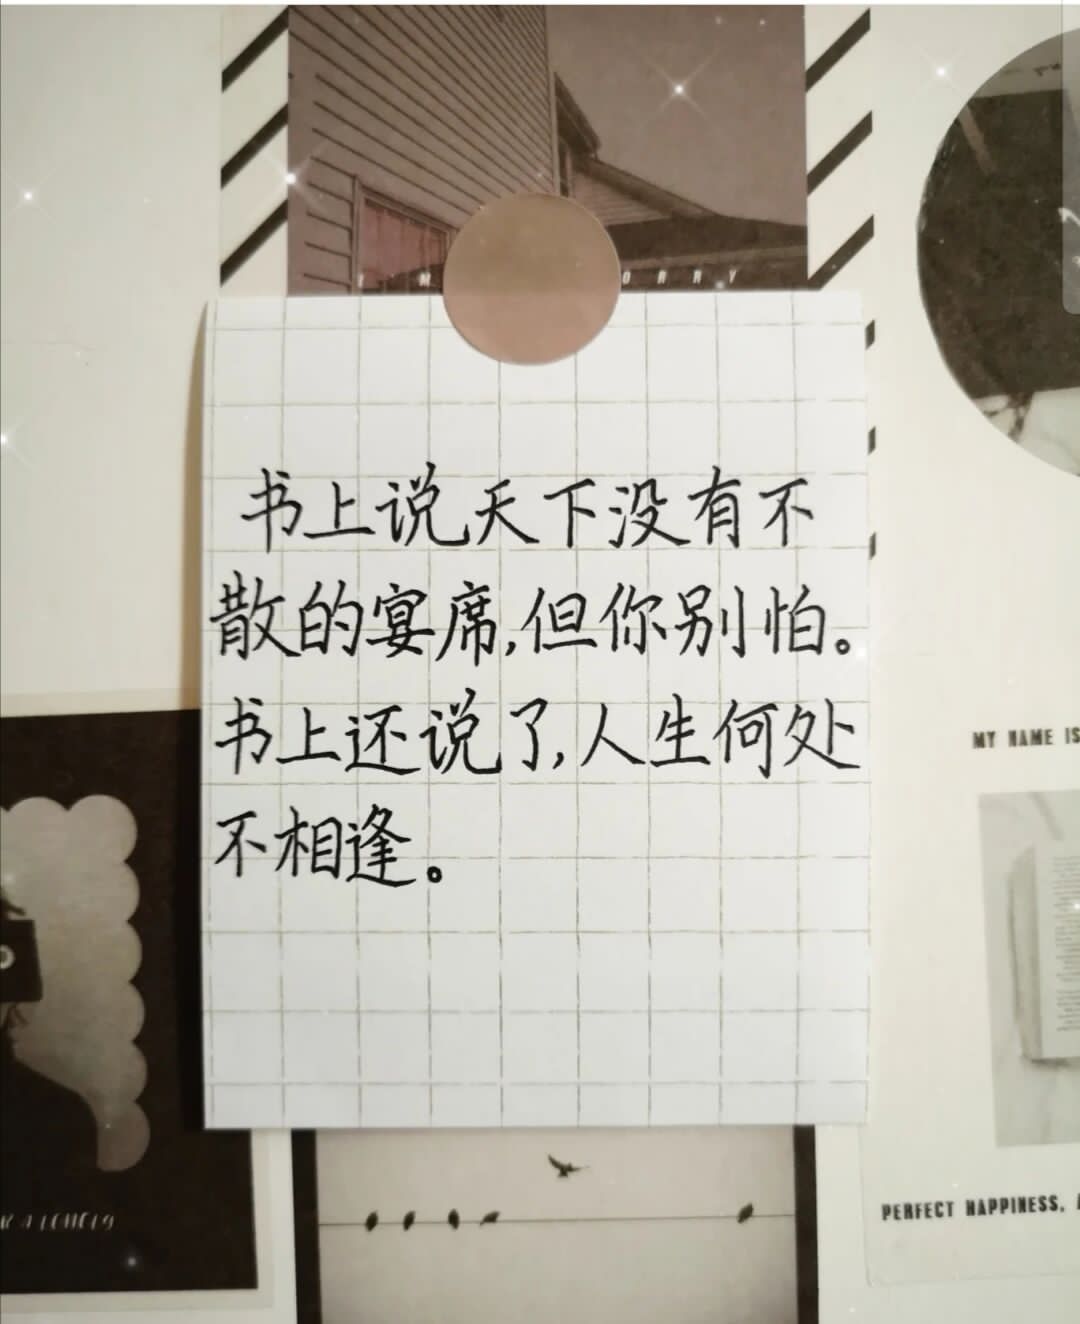 书上说天下没有不
散的宴席,但你别怕。
书上还说了,人生何处
不相逢。
MY NAME IS
PERFECT HAPPINESS,